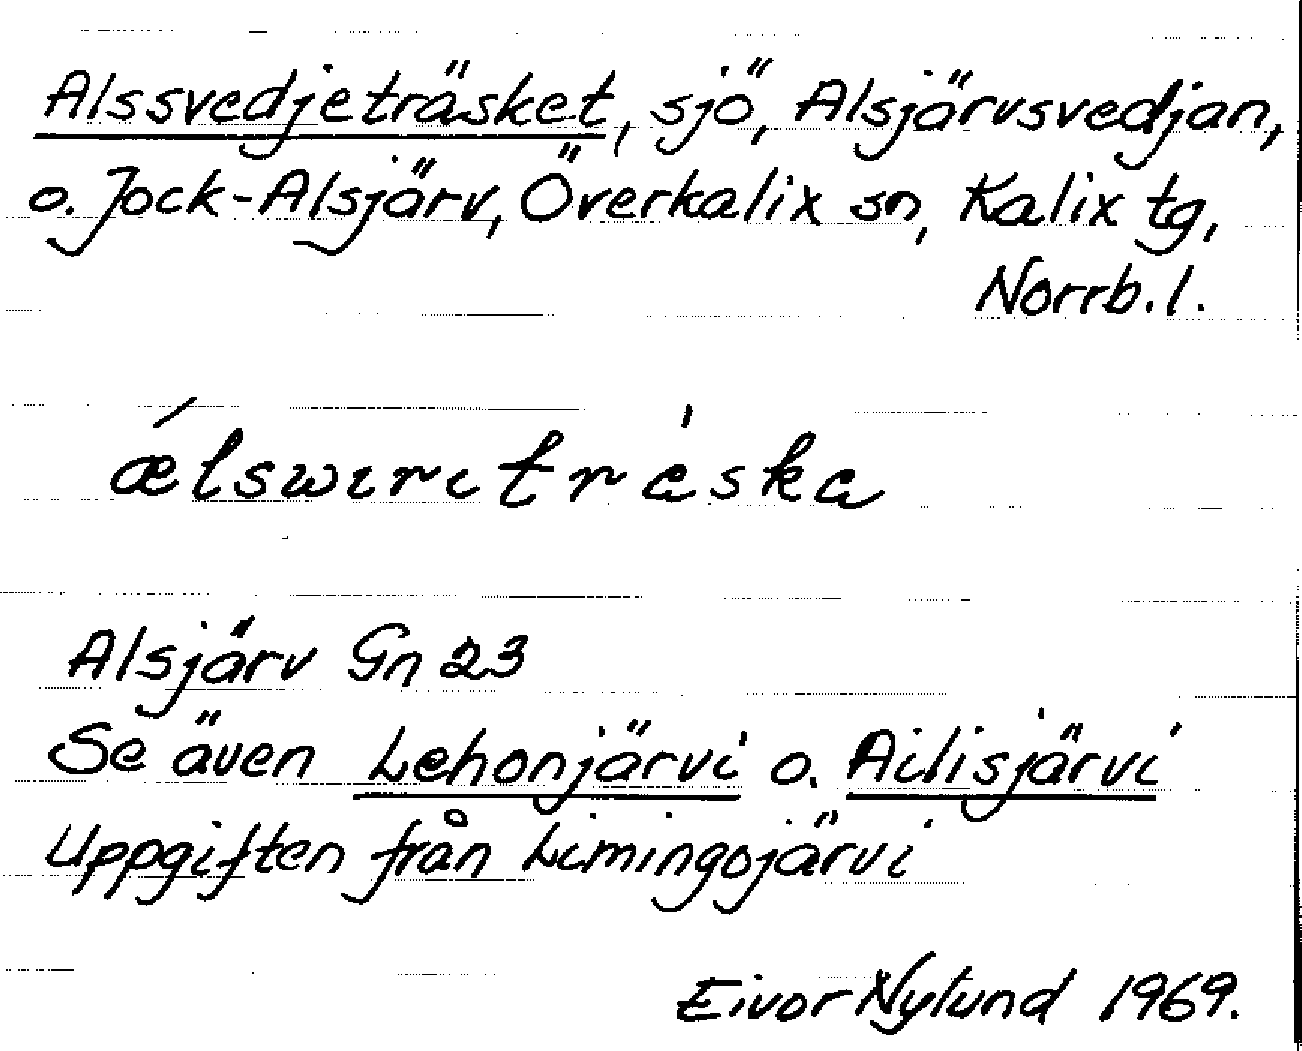 Alssvedjeträsket, sjö, Alsjärvsvedjan,
o. Jock-Alsjärv, Överkalix sn, Kalix tg,
Norrb. l.
ǽlswırıtrèska
Alsjärv Gn 23
Se även Lehonjärvi o. Ailisjärvi
Uppgiften från Limingojärvi
Eivor Nylund 1969.